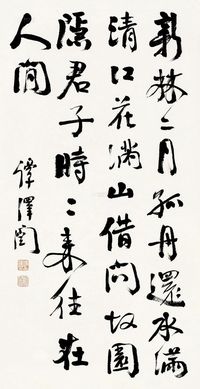 新林二月孤舟還水滿
清江花滿山借問故園
隱君子時〻来往在
人間
譚澤闓